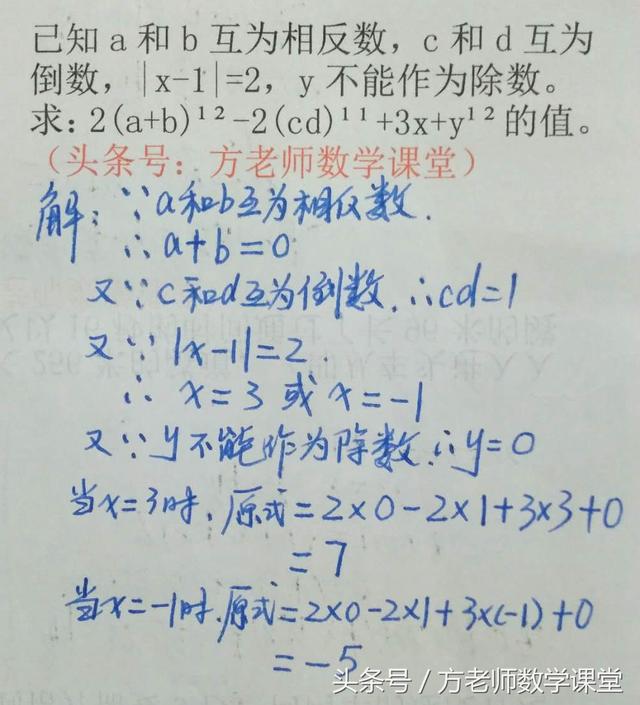 已知a和b互为相反数，c和d互为
倒数，|x-1|=2，y不能作为除数。
求：2(a+b)¹²-2(cd)¹¹+3x+y¹²的值。
（头条号：方老师数学课堂）
解：∵a和b互为相反数.
∴a+b=0
又∵c和d互为倒数,∴cd=1
又∵|x-1|=2
∴ x=3或x=-1
又∵y不能作为除数∴y=0
当x=3时,原式=2×0-2×1+3×3+0
=7
当x=-1时,原式=2×0-2×1+3×(-1)+0
=-5
头条号/方老师数学课堂